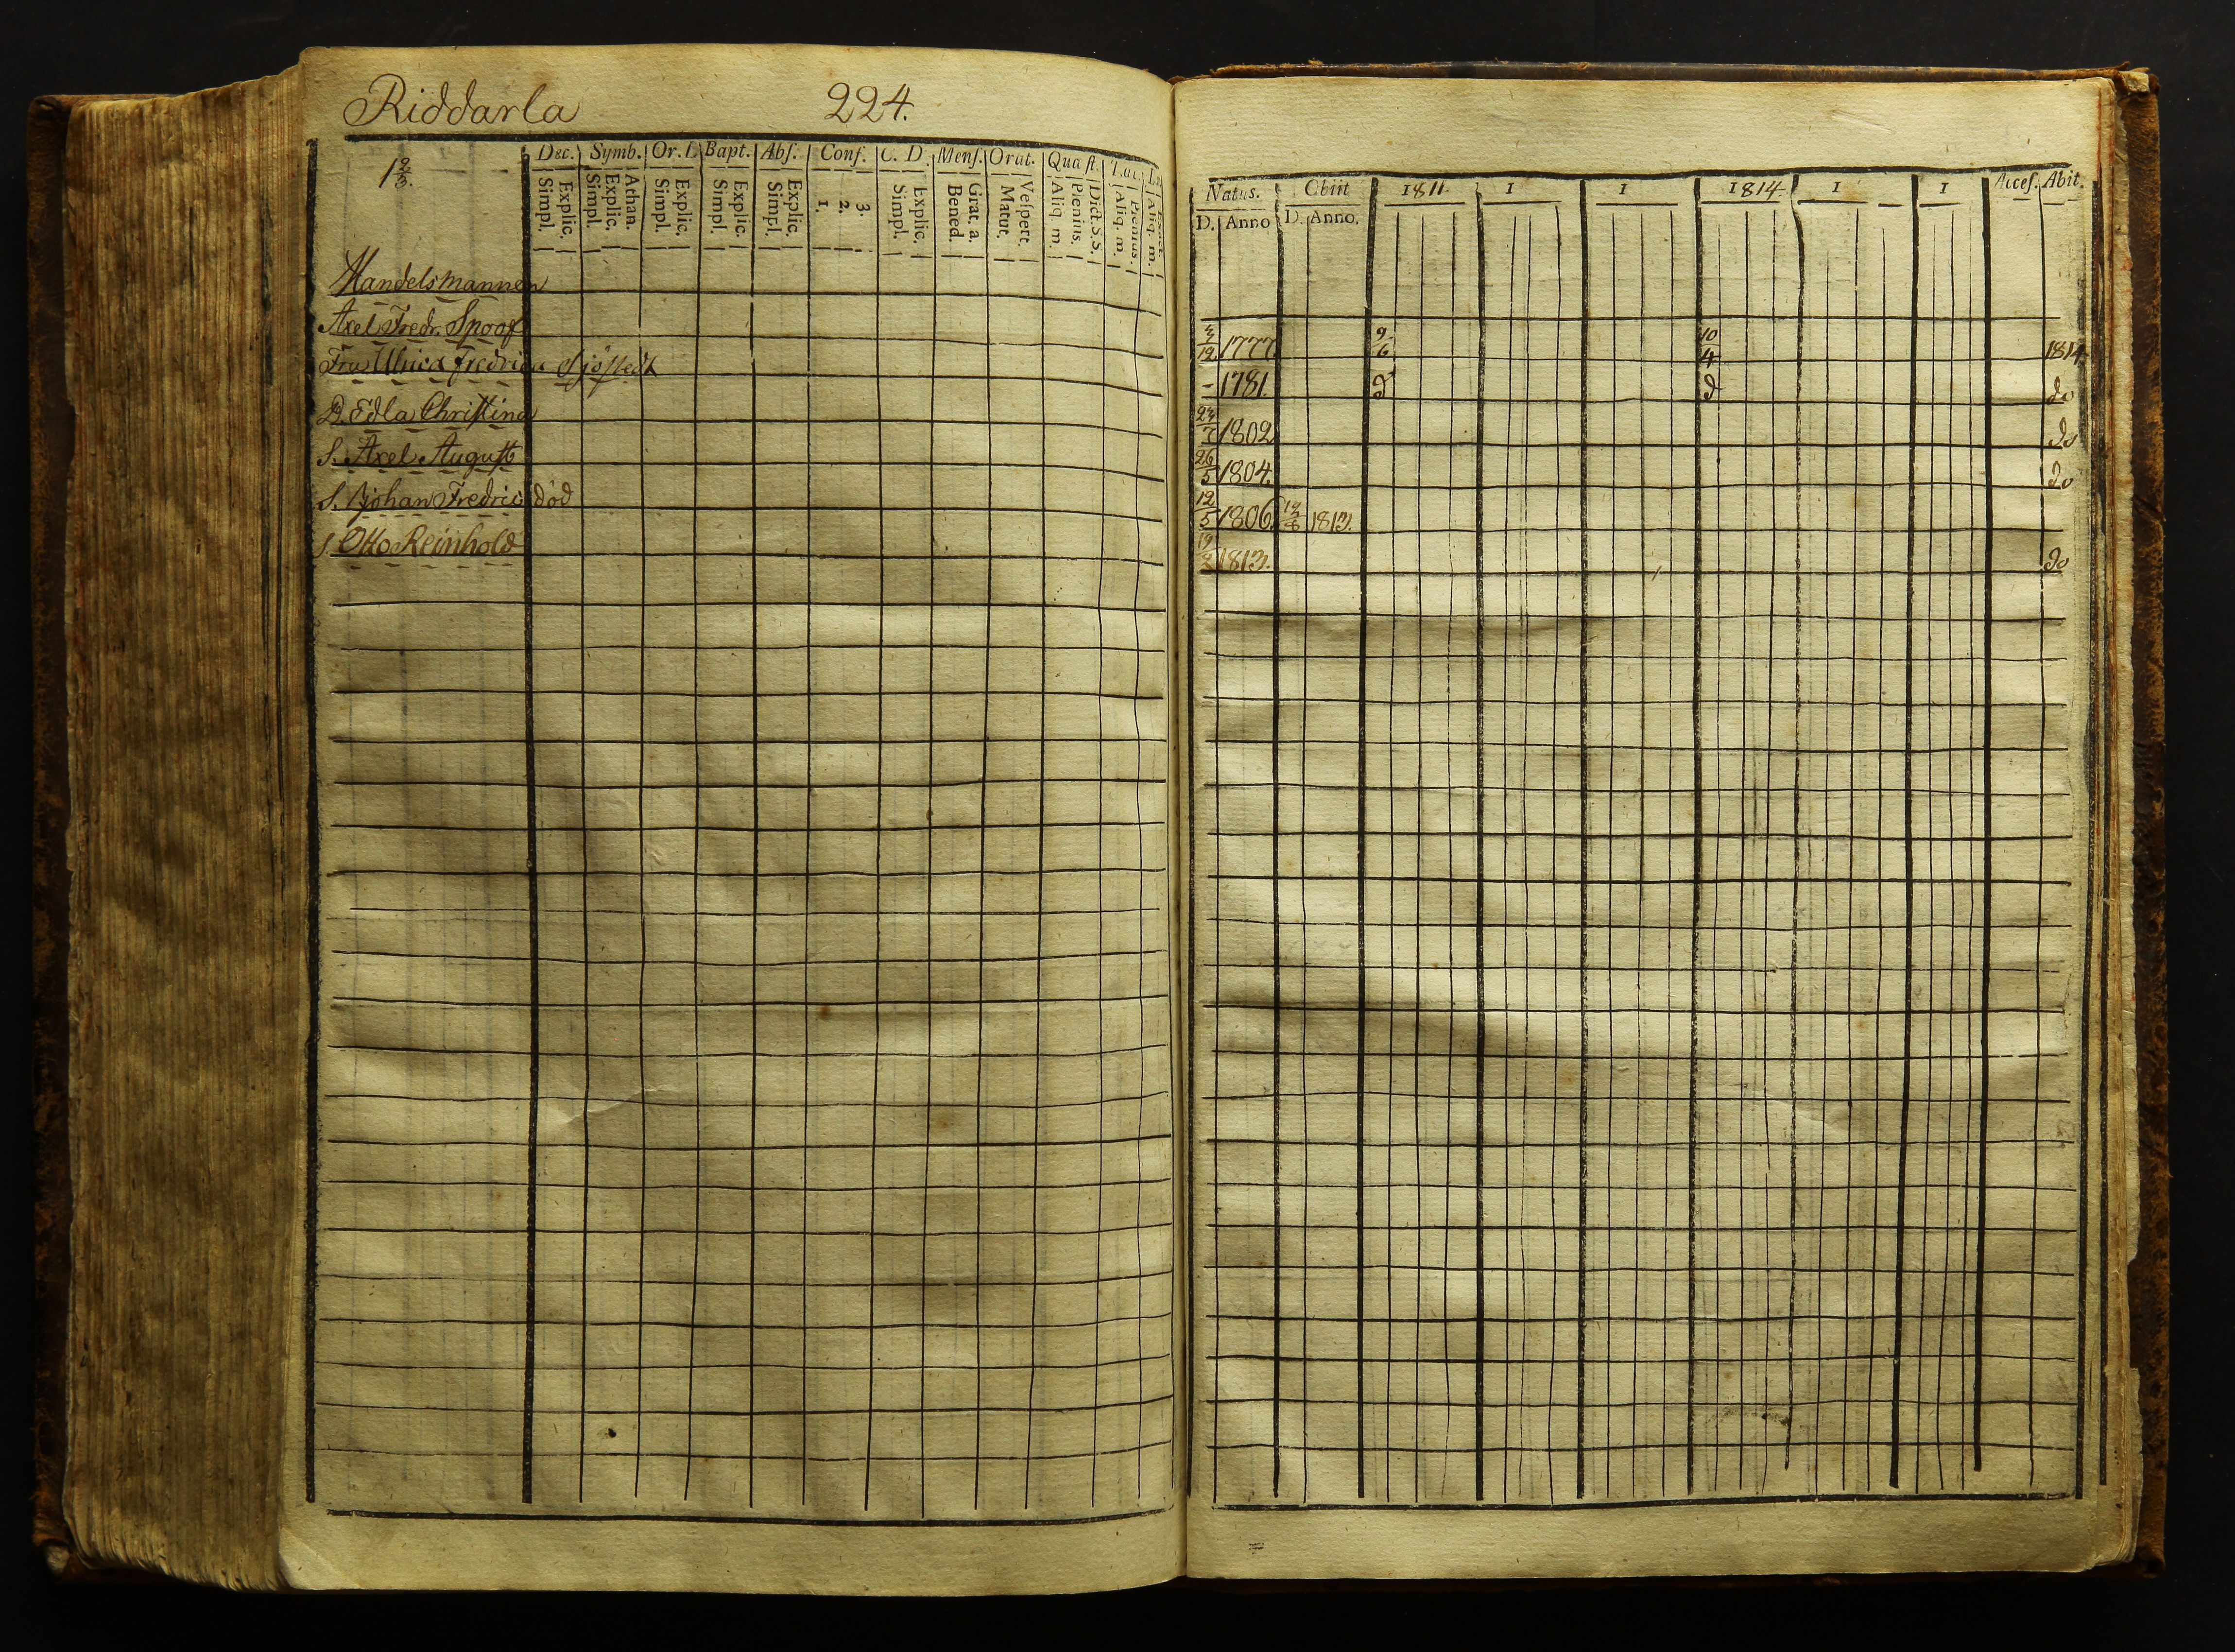 Riddarla 224.
1 2/3.
Dec. Symb. Or. D Bapt. Abs. Conf. C. D. Mens. Orat. Quæst. Tac.
Simpl. Explic. Simpl. Explic. Athan. Simpl. Explic. Simpl. Explic. Simpl. Explic. 1. 2. 3. Simpl. Explic. Bened. Grat. a. Matut. Vespert. Aliq. m. Plenius. Dict. S.S. Aliq. m. Plenius. Aliq. m.
Natus. Obiit 1811. 1 1 1814. 1 1 Acces. Abit.
D. Anno D. Anno.
Handelsmannen
Axel Fredr. Spoof 3/12 1777. 9/6 10/4 1814
Fru Ulrica Fredrica Sjöstedt - 1781. d d do
D. Edla Christina 23/7 1802 do
S. Axel August 26/5 1804. do
S. Johan Fredric död 12/5 1806. 1813.
S. Otto Reinhold 1813. do